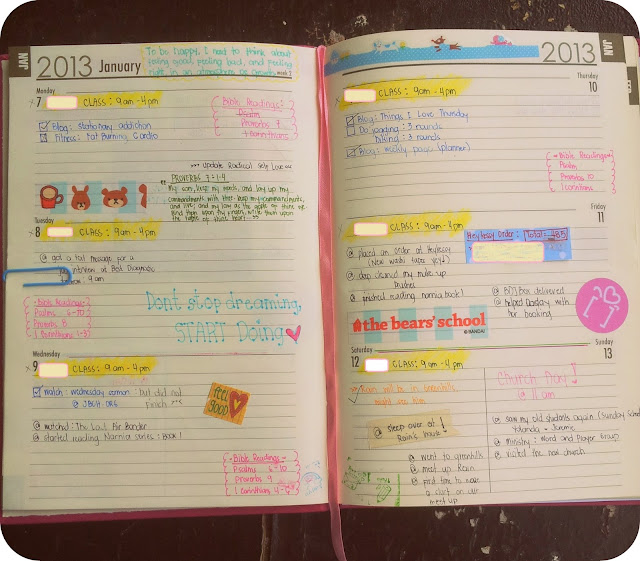 JAN
2013 January
week 2
To be happy, I need to think about
feeling good, feeling bad, and feeling
right, in an atmosphere of growth.
Monday
7
CLASS: 9am - 4pm
Blog: stationary addiction
Fitness: Fat Burning Cardio
Bible Readings:
Psalm
Proverbs 7
1 Corinthians
Update Radical Self Love
PROVERBS 7:1-4
My son, keep my words, and lay up my
commandments with thee. Keep my commandments,
and live; and my law as the apple of thine eye.
Bind them upon thy fingers, write them upon
the table of thine heart.
Tuesday
8
CLASS: 9am - 4pm
@ got a txt message for a
interview at Best Diagnostic
9am
Bible Readings
Psalms 6-10
Proverbs 8
1 Corinthians 1-3
Dont stop dreaming,
START Doing
Wednesday
9
CLASS: 9am - 4pm
watch: wednesday sermon: but did not
@ JBCH.ORG finish
feel good
@ watched: The Last Air Bender
@ started reading Narnia series: Book 1
Bible Readings
Psalms 6-10
Proverbs 9
1 Corinthians 4-
2013
JAN
Thursday
10
CLASS: 9am - 4pm
Blog: Things I Love Thursday
Do Jogging: 3 rounds
Hiking: 3 rounds
Blog: weekly page (planner)
Bible Readings
Psalm
Proverbs 10
1 Corinthians
Friday
11
CLASS: 9am - 4pm
HeyYessy Order: Total= 485
@ placed an order at HeyYessy
(New washi tapes yey!)
@ deep cleaned my make up
brushes
@ finished reading narnia book 1
@ BDJ Box delivered
@ helped Daddy with
her booking
the bears' school
©BANDAI
Saturday
12
CLASS: 9am - 4pm
Rain will be in Greenhills
might see him
@ sleep over at
Rain's house
@ went to greenhills
@ meet up Rain
@ first time to have
a start on our
meet up
Sunday
13
Church Day!
@ 11am
@ saw my old students again (Sunday School)
Yolanda + Jeremie
@ Ministry: Word and Prayer Group
@ visited the new church